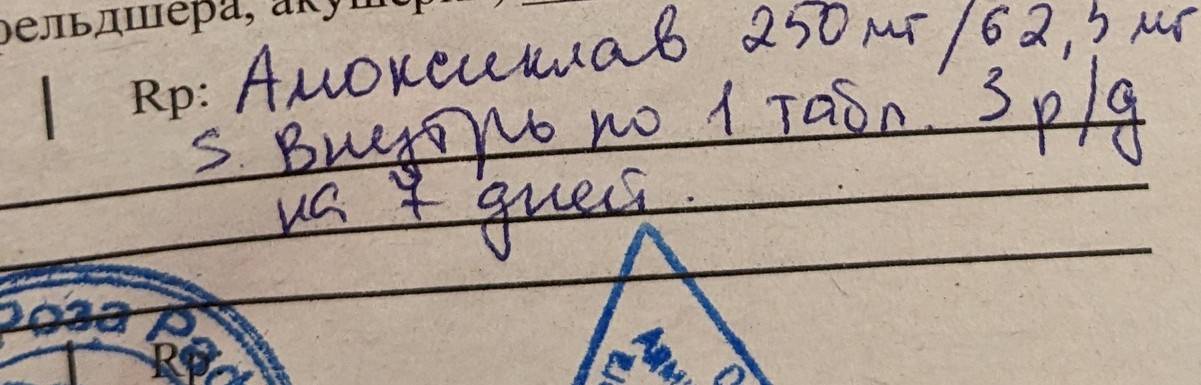 фельдшера,
Rp: Амоксиклав 250 мг/62,5 мг
S. Внутрь по 1 табл. 3 р/д
на 7 дней.
Rp